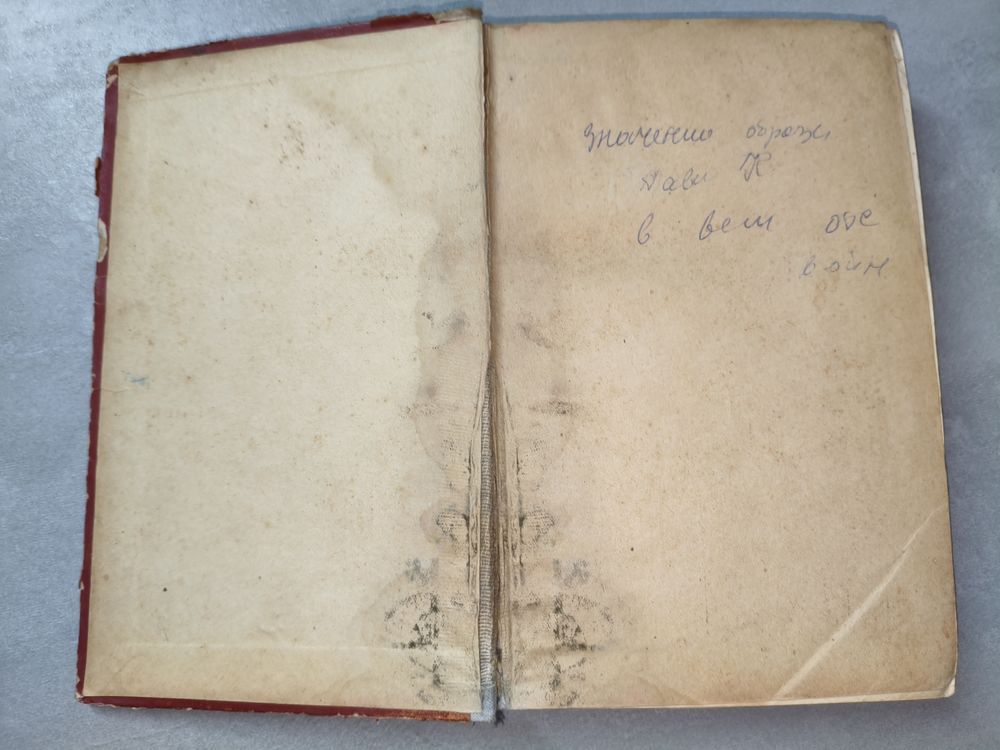 Значение образа
Павл К
в вел оте
войн